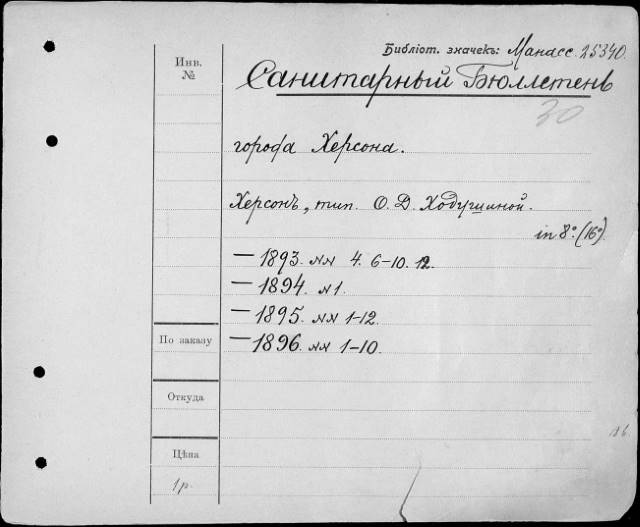 Библіот. значекъ: Манасс. 25340.
Инв.
№
Санитарный Бюллетень
30
города Херсона.
Херсонъ, тип. О. Д. Ходушиной.
in 8º. (16º).
— 1893. №№ 4. 6-10. 12.
— 1894. №1.
— 1895. №№ 1-12.
По заказу
— 1896. №№ 1-10.
Откуда
Цѣна
1 р.